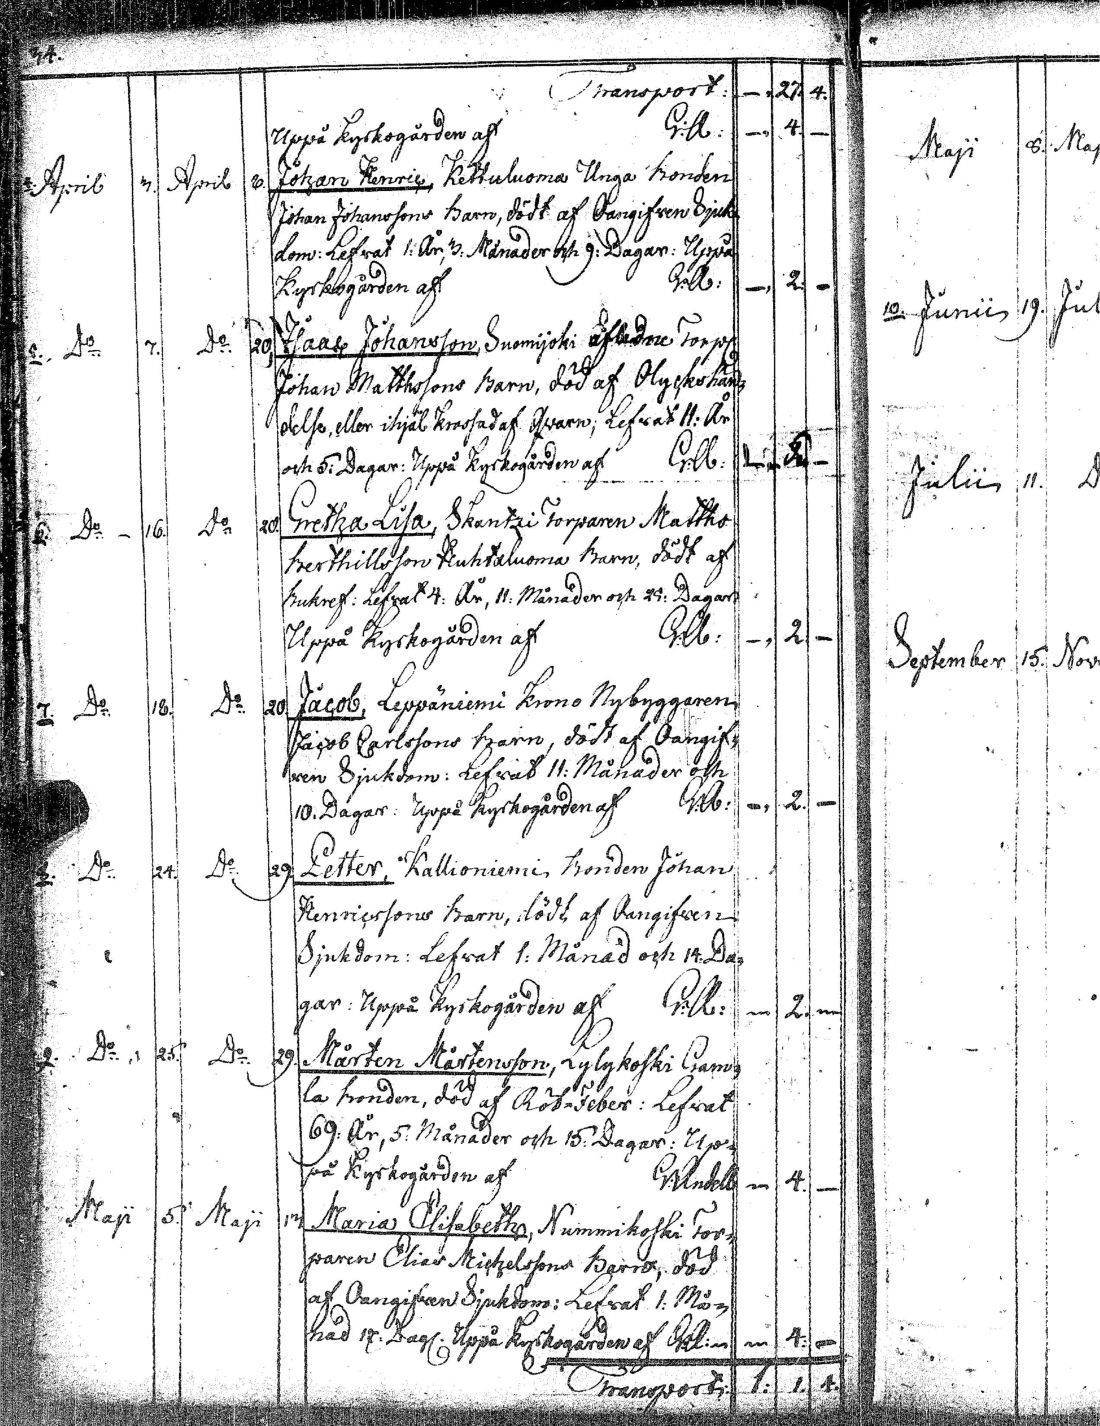 34.
Transport: —, 27. 4.
Uppå Kyrkogården af G:ll: —, 4. —
April 3. April 8. Johan Henric, Kettuluoma Unga bonden
Johan Johanssons barn, dödt af Oangifven Sjuk-
dom: Lefvat 1: År, 3. Månader och 9: Dagar: Uppå
Kyrkogården af G:ll: —, 2. —
5. Do 7. Do 20. Isaac Johansson, Suomijoki afledne Torp:
Johan Matthssons barn, död af Olyckshän-
delse, eller ihjäl krossad af Qvarn; Lefvat 11: År
och 5: Dagar: Uppå Kyrkogården af G:ll: —
6. Do — 16. Do 20. Gretha Lisa, Skantzi Torparen Matths
Berthillsson Huhtaluoma barn, dödt af
Bukref: Lefvat 4: År, 11: Månader och 24: Dagar
Uppå Kyrkogården af G:ll: —, 2. —
7. Do 18. Do 20. Jacob, Leppäniemi Krono Nybyggaren
Jacob Carlssons barn, dödt af Oangif-
ven Sjukdom: Lefvat 11: Månader och
10. Dagar: Uppå Kyrkogården af G:ll: —, 2. —
8. Do 24. Do 29. Petter, Kallioniemi bonden Johan
Henricssons barn, dödt af Oangifven
Sjukdom: Lefvat 1: Månad och 14: Da-
gar: Uppå Kyrkogården af G:ll: — 2. —
9. Do 25. Do 29. Mårten Mårtensson, Lylykoski Gam-
la bonden, död af Röt-Feber: Lefvat
69: År, 5: Månader och 15: Dagar: Up-
på Kyrkogården af — 4. —
Maji 5. Maji 13. Maria Elisabeth, Nummikoski Tor-
paren Elias Michelssons barn, död
af Oangifven Sjukdom: Lefvat 1: Må-
nad 17. Dag: Uppå Kyrkogården af G:ll: — 4. —
Transport: 1: 1. 4.
Maji 8. Maj
10. Junii 19. Jul
Julii 11. D
September 15. Nov